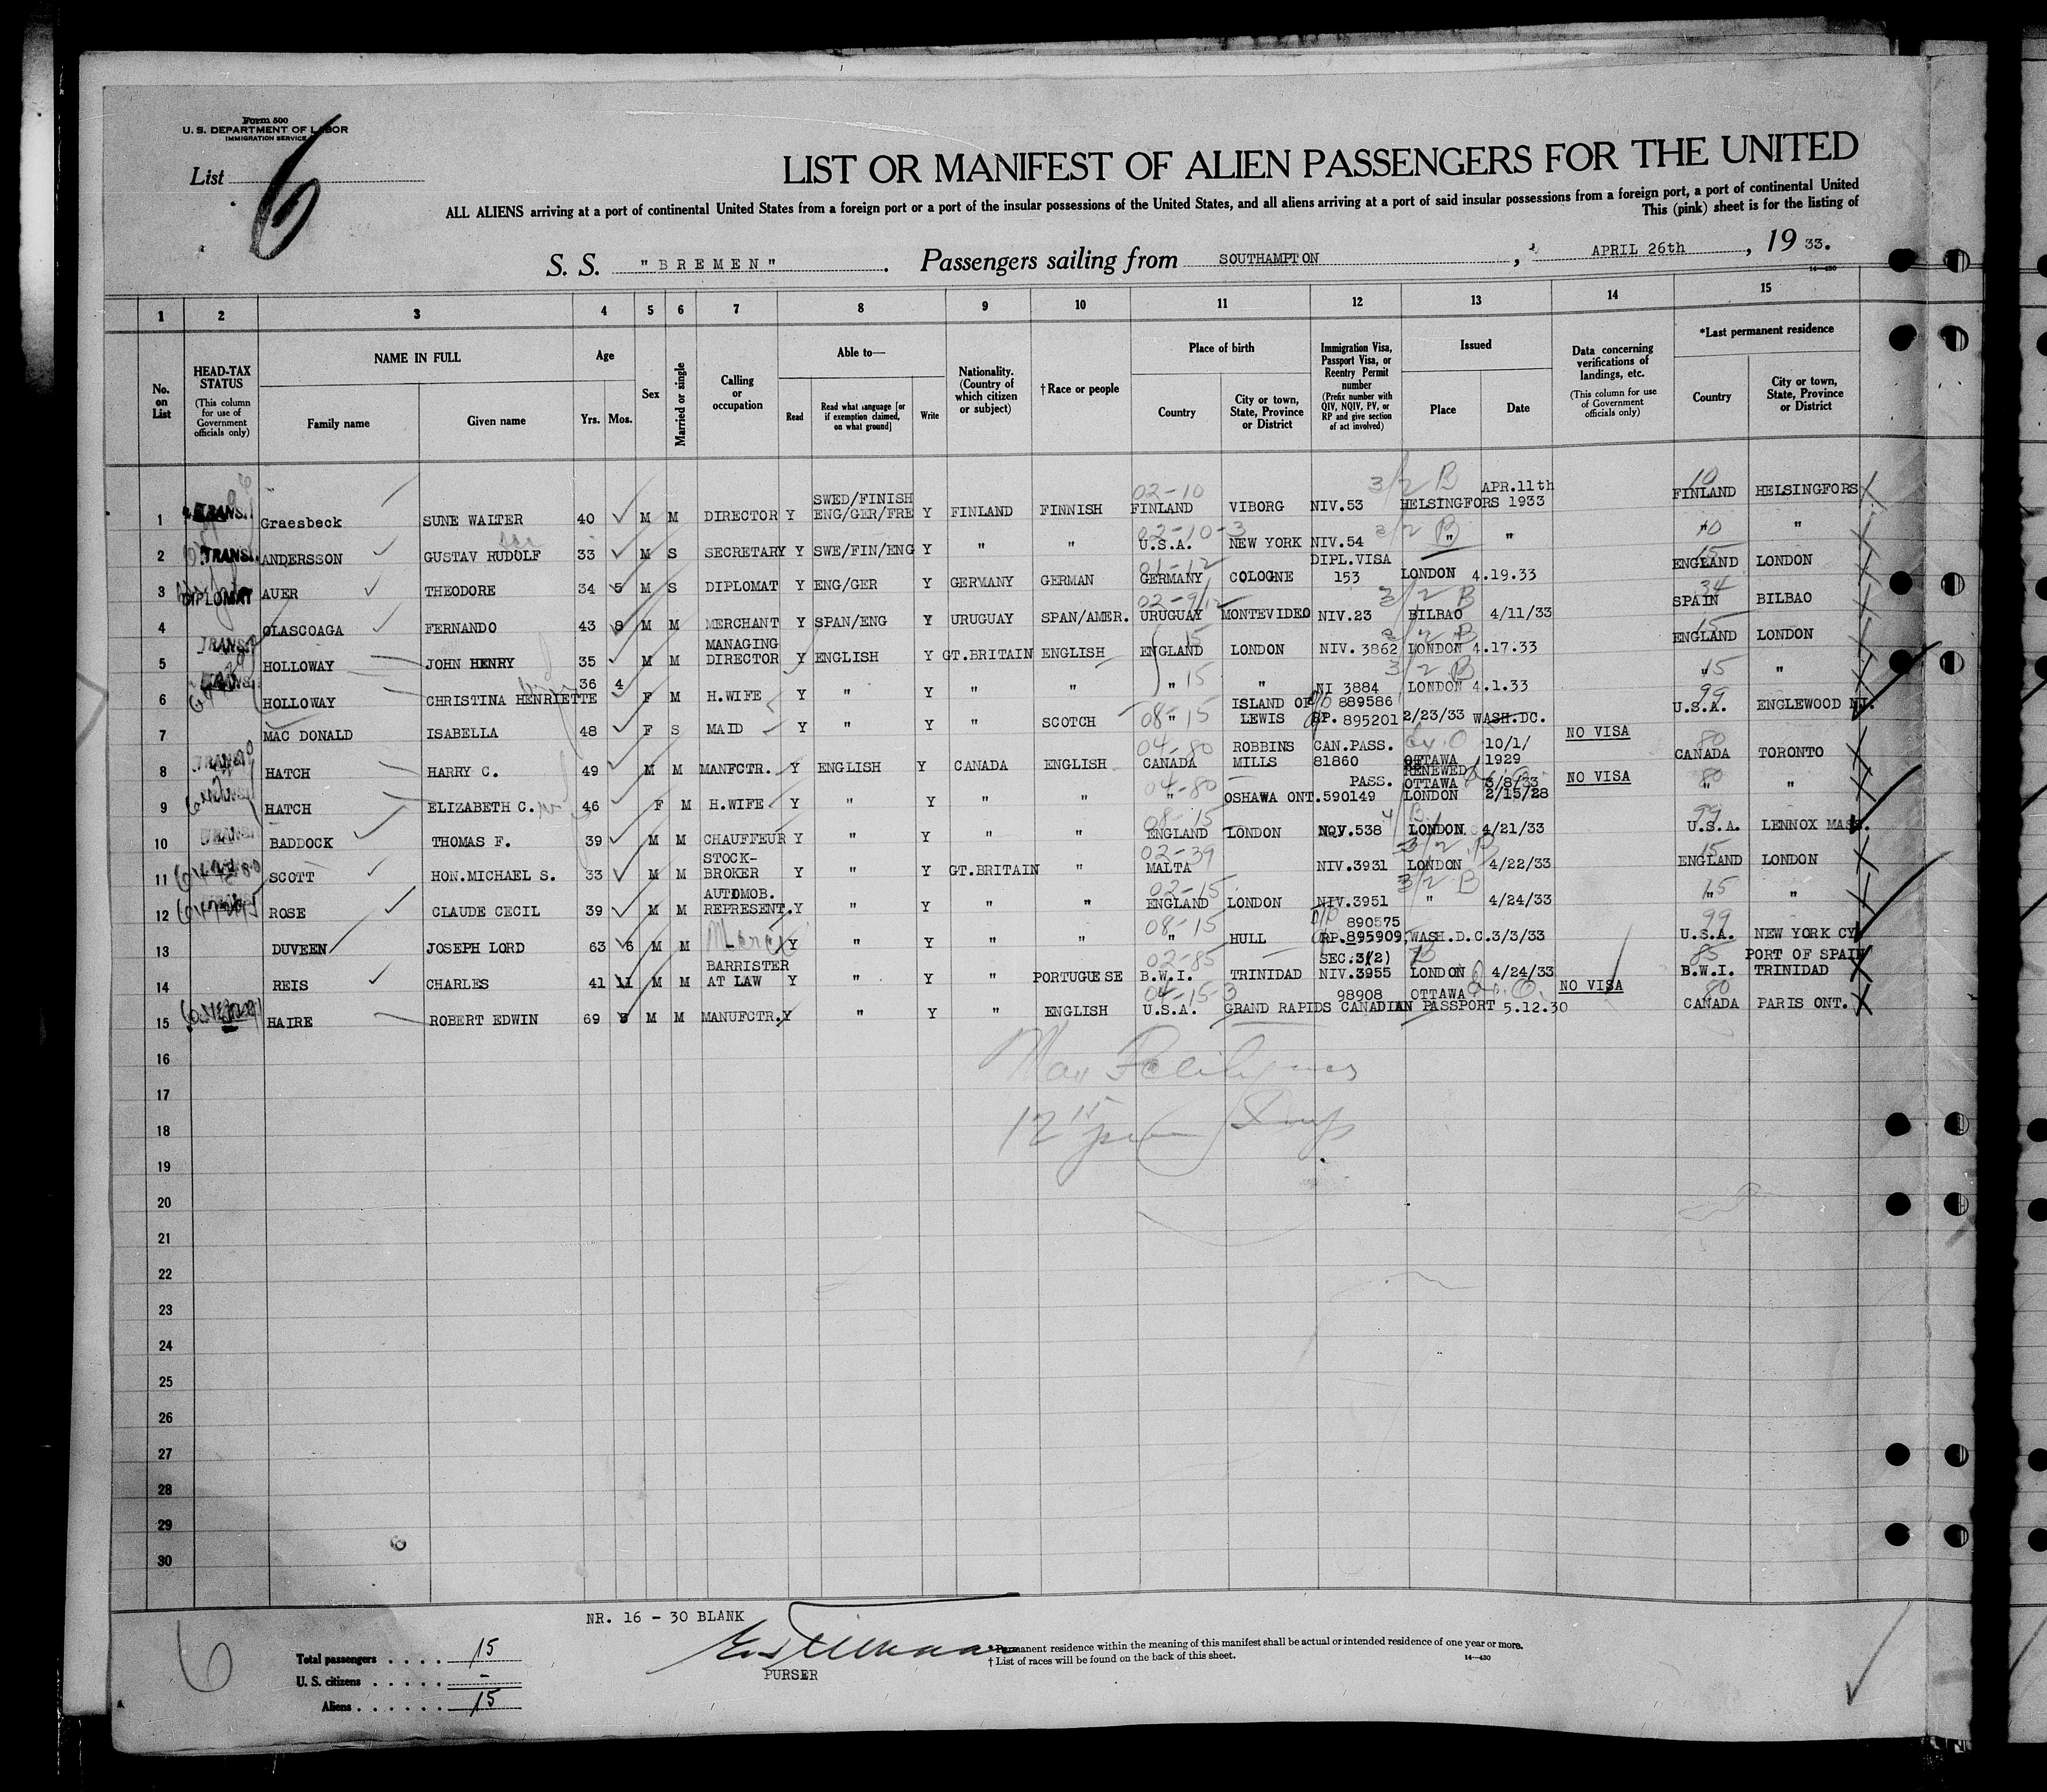 Form 500
U. S. DEPARTMENT OF LABOR
IMMIGRATION SERVICE
List 6
LIST OR MANIFEST OF ALIEN PASSENGERS FOR THE UNITED
ALL ALIENS arriving at a port of continental United States from a foreign port or a port of the insular possessions of the United States, and all aliens arriving at a port of said insular possessions from a foreign port, a port of continental United
This (pink) sheet is for the listing of
S. S. "BREMEN". Passengers sailing from SOUTHAMPTON, APRIL 26th, 19 33.
14—430
1 2 3 4 5 6 7 8 9 10 11 12 13 14 15
No. on List
HEAD-TAX STATUS (This column for use of Government officials only)
NAME IN FULL
Family name Given name
Age
Yrs. Mos.
Sex
Married or single
Calling or occupation
Able to—
Read Read what language [or if exemption claimed, on what ground] Write
Nationality. (Country of which citizen or subject)
† Race or people
Place of birth
Country City or town, State, Province or District
Immigration Visa, Passport Visa, or Reentry Permit number (Prefix number with QIV, NQIV, PV, or RP and give section of act involved)
Issued
Place Date
Data concerning verifications of landings, etc. (This column for use of Government officials only)
*Last permanent residence
Country City or town, State, Province or District
1 TRANSIT Graesbeck SUNE WALTER 40 M M DIRECTOR Y SWED/FINISH ENG/GER/FRE Y FINLAND FINNISH 02-10 FINLAND VIBORG NIV.53 3/2 B HELSINGFORS APR.11th 1933 10 FINLAND HELSINGFORS
2 TRANSI. ANDERSSON GUSTAV RUDOLF 33 M S SECRETARY Y SWE/FIN/ENG Y " " 02-10-3 U.S.A. NEW YORK NIV.54 3/2 B " " 10 "
3 DIPLOMAT AUER THEODORE 34 5 M S DIPLOMAT Y ENG/GER Y GERMANY GERMAN 01-12 GERMANY COLOGNE DIPL.VISA 153 LONDON 4.19.33 15 ENGLAND LONDON
4 OLASCOAGA FERNANDO 43 8 M M MERCHANT Y SPAN/ENG Y URUGUAY SPAN/AMER. 02-9/12 URUGUAY MONTEVIDEO NIV.23 3/2 B BILBAO 4/11/33 34 SPAIN BILBAO
5 TRANSIT HOLLOWAY JOHN HENRY 35 M M MANAGING DIRECTOR Y ENGLISH Y GT.BRITAIN ENGLISH 15 ENGLAND LONDON NIV. 3862 3/2 B LONDON 4.17.33 15 ENGLAND LONDON
6 HOLLOWAY CHRISTINA HENRIETTE 36 4 F M H.WIFE Y " Y " " " 15 " NI 3884 3/2 B LONDON 4.1.33 15 " "
7 MAC DONALD ISABELLA 48 F S MAID Y " Y " SCOTCH 08-15 " ISLAND OF LEWIS 889586 RP. 895201 2/23/33 WASH.DC. 99 U.S.A. ENGLEWOOD NJ.
8 HATCH HARRY C. 49 M M MANFCTR. Y ENGLISH Y CANADA ENGLISH 04-80 CANADA ROBBINS MILLS CAN.PASS. 81860 OTTAWA 10/1/ 1929 NO VISA 80 CANADA TORONTO
9 HATCH ELIZABETH C. 46 F M H.WIFE Y " Y " " 04-80 " OSHAWA ONT. PASS. 590149 RENEWED OTTAWA 3/8/33 LONDON 2/15/28 NO VISA 80 " "
10 BADDOCK THOMAS F. 39 M M CHAUFFEUR Y " Y " " 08-15 ENGLAND LONDON NQV.538 LONDON 4/21/33 99 U.S.A. LENNOX MASS.
11 SCOTT HON.MICHAEL S. 33 M M STOCK-BROKER Y " Y GT.BRITAIN " 02-39 MALTA NIV.3931 3/2 B LONDON 4/22/33 15 ENGLAND LONDON
12 ROSE CLAUDE CECIL 39 M M AUTOMOB. REPRESENT. Y " Y " " 02-15 ENGLAND LONDON NIV.3951 3/2 B " 4/24/33 15 " "
13 DUVEEN JOSEPH LORD 63 6 M M Y " Y " " 08-15 " HULL 890575 RP.895909 WASH.D.C. 3/3/33 99 U.S.A. NEW YORK CY
14 REIS CHARLES 41 11 M M BARRISTER AT LAW Y " Y " PORTUGIESE 02-85 B.W.I. TRINIDAD SEC.3(2) NIV.3955 LONDON 4/24/33 85 B.W.I. PORT OF SPAIN TRINIDAD
15 HAIRE ROBERT EDWIN 69 8 M M MANUFCTR. Y " Y " ENGLISH 04-15-3 U.S.A. GRAND RAPIDS 98908 CANADIAN PASSPORT OTTAWA 5.12.30 NO VISA 80 CANADA PARIS ONT.
16
17
18
19
20
21
22
23
24
25
26
27
28
29
30
NR. 16 - 30 BLANK
6
PURSER
*Permanent residence within the meaning of this manifest shall be actual or intended residence of one year or more.
† List of races will be found on the back of this sheet.
14—430
Total passengers . . . . 15
U. S. citizens . . . . . –
Aliens . . . . . . 15